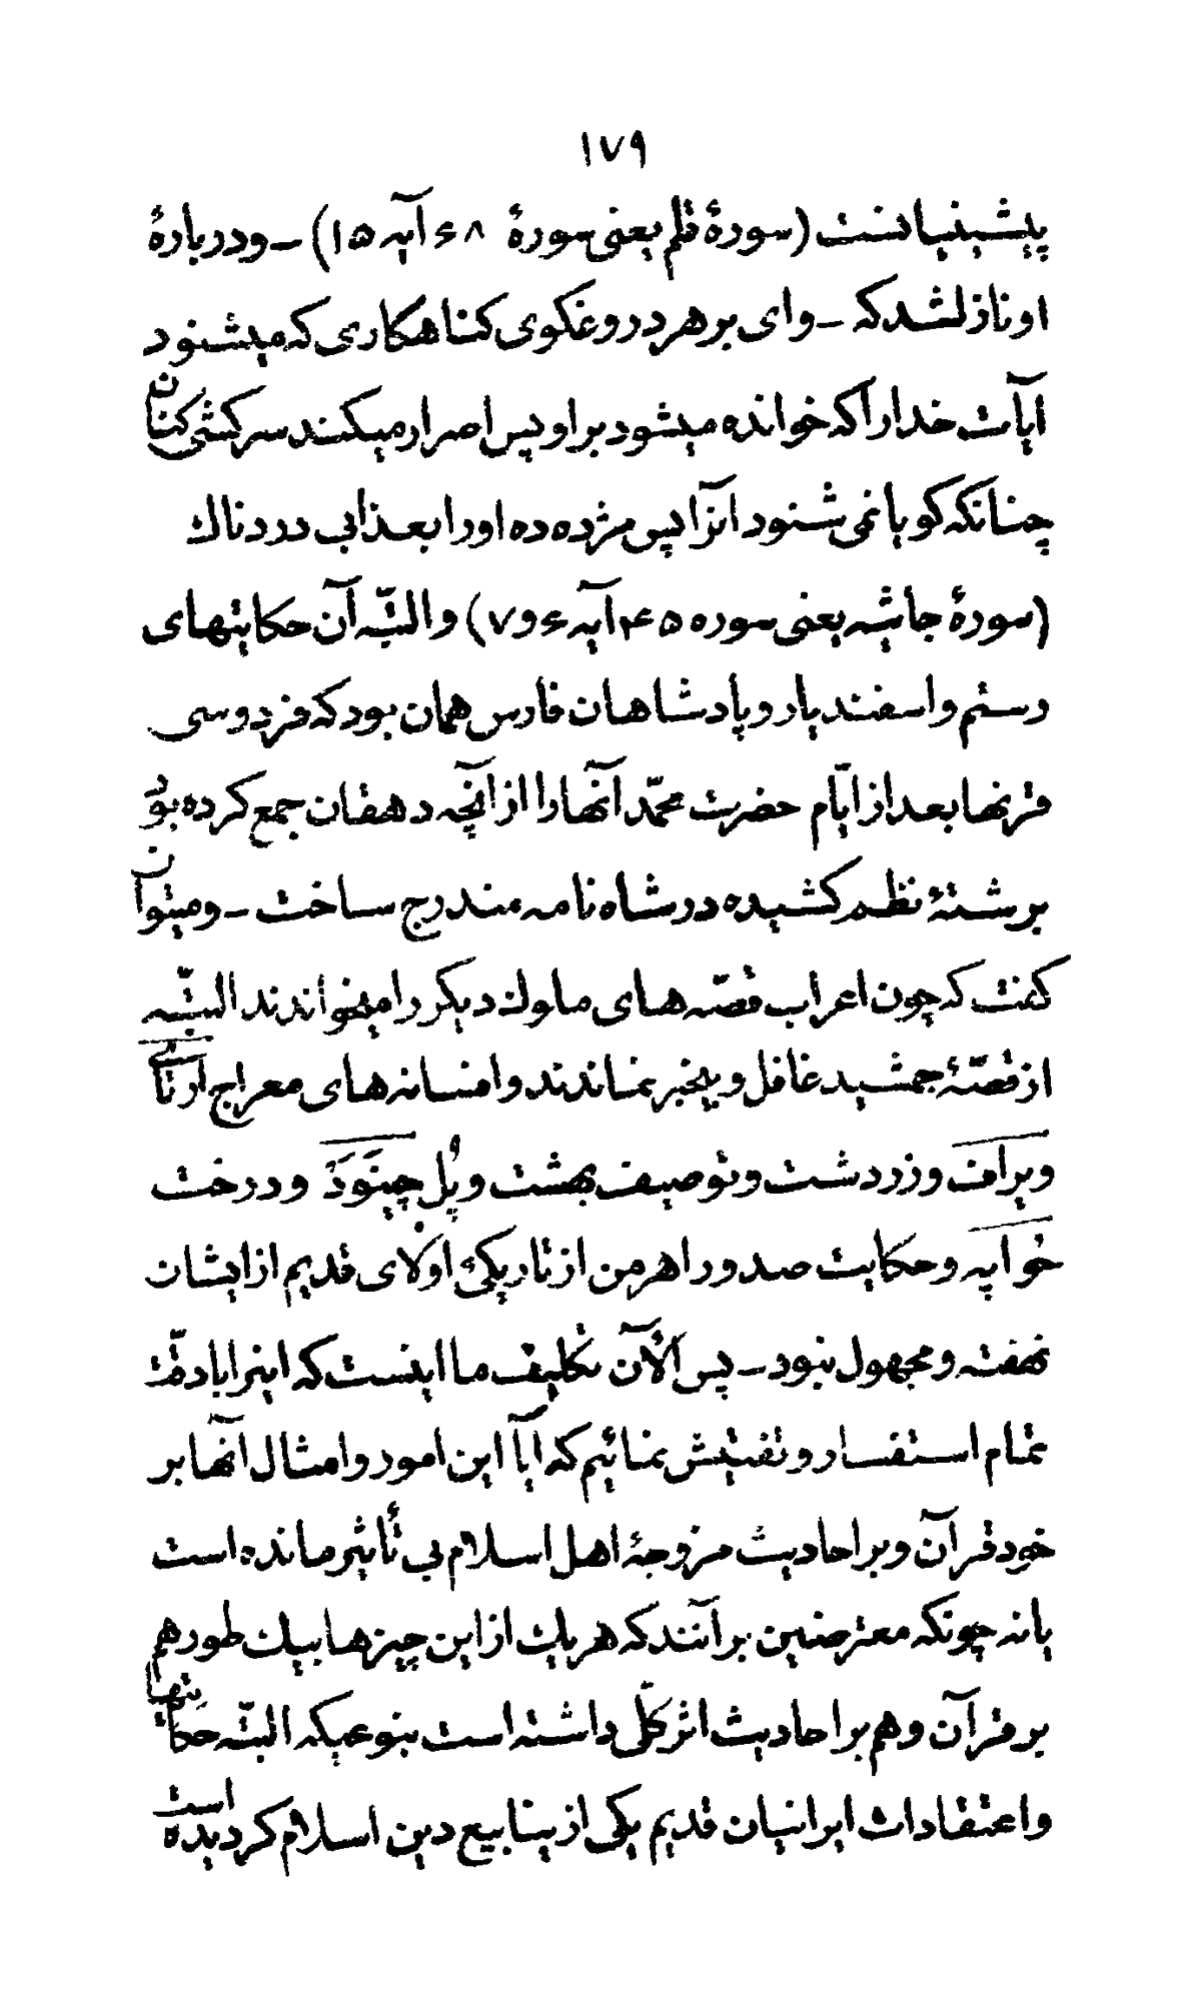 ١٧٩
پیشینیانست (سورهٔ قلم یعنی سورهٔ ۶۸ آیه ۱۵) ــ ودربارهٔ
او نازلشد که ــ وای بر هر دروغکوی کناهکاری که میشنود
آیات خدا را که خوانده میشود بر او پس اصرار میکند سرکشی کنان
چنانکه کویا نمی شنود آنرا پس مژده ده او را بعذابی دردناك
(سورهٔ جاثیه یعنی سوره ۴۵ آیه ۶ و ۷) و البتّه آن حکایتهای
رستم و اسفندیار و پادشاهان فارس همان بود که فردوسی
قرنها بعد از ایّام حضرت محمّد آنها را از آنچه دهقان جمع کرده بود
برشتهٔ نظم کشیده در شاه نامه مندرج ساخت ــ و میتوان
کفت که چون اعراب قصّه های ملوك دیکر را میخواندند البتّه
از قصّهٔ جمشید غافل و بیخبر نماندند و افسانه های معراج ارتای
ویراف و زردشت و توصیف بهشت و پُل چِینَوَدْ و درخت
خُواپه و حکایت صدور اهرمن از تاریکیٔ اوّلای قدیم از ایشان
نهفته و مجهول نبود ــ پس الآن تکلیف ما اینست که اینرا با دقّت
تمام استفسار و تفتیش نمائیم که آیا این امور و امثال آنها بر
خود قرآن و بر احادیث مزوجهٔ اهل اسلام بی تأثیر مانده است
یا نه چونکه معترضین بر آنند که هر یك از این چیزها بیك طور هم
بر قرآن و هم بر احادیث اثر کلّی داشته است بنوعیکه البتّه حکایتها
و اعتقادات ایرانیان قدیم یکی از ینابیع دین اسلام کردیده است